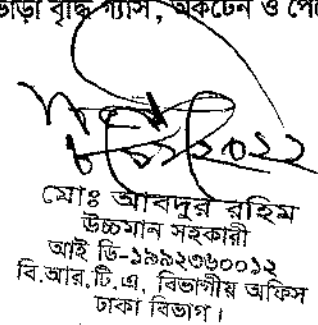 ভাড়া বৃদ্ধি গ্যাস, অকটেন ও
মোঃ আবদুর রহিম
উচ্চমান সহকারী
আই ডি-১৯৯২৩৬০০১২
বি.আর.টি.এ, বিভাগীয় অফিস
ঢাকা বিভাগ।